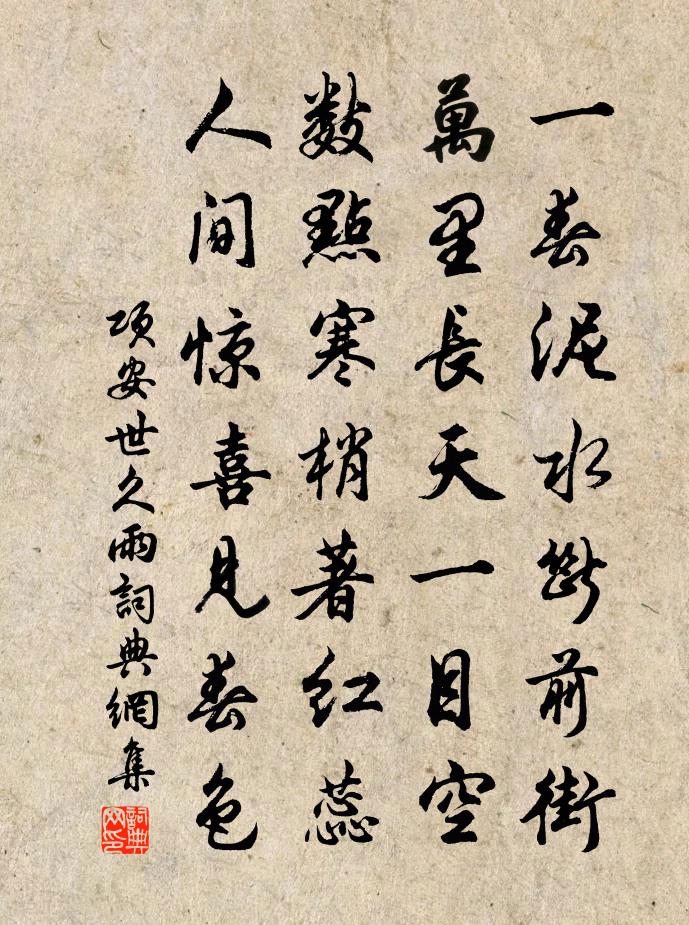 一春泥水斷前街
萬里長天一目空
數點寒梢著紅蕊
人间惊喜見春色
項安世久雨詞典網集
詞典网印